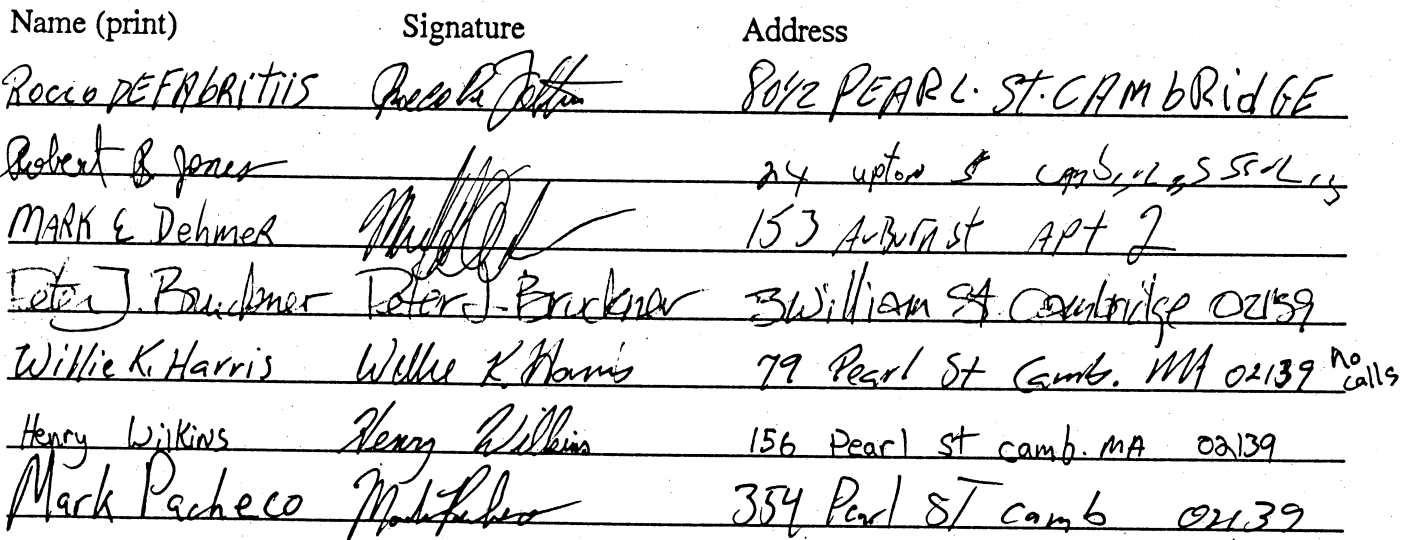 Name (print) Signature Address
Rocco DEFAbRITiis Rocco De 80½ PEARL. ST. CAMbRidGE
Robert B Jones 24 upton S
MARK E DehmeR 153 AuBurn st APt 2
Peter J. Bruckner Peter J. Bruckner 3 William St. Cambridge 02139
Willie K. Harris Willie K. Harris 79 Pearl St Camb. MA 02139 no calls
Henry Wilkins Henry Wilkins 156 Pearl st camb. MA 02139
Mark Pacheco Mark Pacheco 354 Pearl ST camb 02139